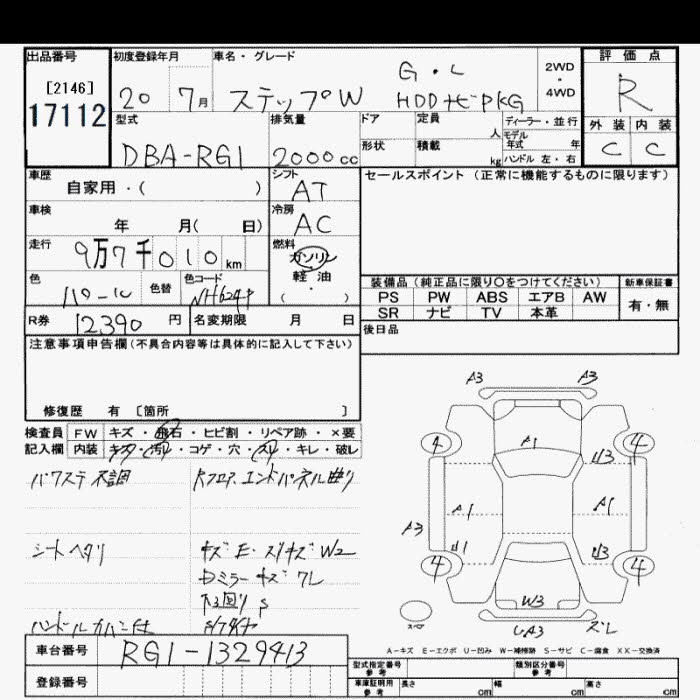 出品番号
[2146]
17112
初度登録年月
20 7月
車名・グレード
ステップW
G・L
HDDナビPKG
2WD
・
4WD
評価点
R
外装 内装
C C
型式
DBA-RG1
排気量
2000cc
ドア
形状
定員
人
積載
kg
ディーラー・並行
モデル
年式 年
ハンドル 左・右
車歴
自家用・( )
シフト
AT
セールスポイント (正常に機能するものに限ります)
車検
年 月( 日)
冷房
AC
走行
9万7千010km
燃料
ガソリン
軽油
( ・ )
色
パールホワイト
色替
色コード
NH624P
装備品 (純正品に限り○をつけてください)
PS PW ABS エアB AW
SR ナビ TV 本革
新車保証書
有・無
R券 12,390 円
名変期限 月 日
後日品
注意事項申告欄 (不具合内容等は具体的に記入して下さい)
修復歴 有 [箇所 ]
検査員 FW キズ・飛石・ヒビ割・リペア跡・×要
記入欄 内装 キズ・汚れ・コゲ・穴・スレ・キレ・破レ
パワステ不調
Rフロア、エンドパネル曲り
シートヘタリ
キズE・スリキズW2
Dミラーキズ フレ
下回りS
ハンドルカバー付
A3 A3
4 A1 4
U3
A1 A1
A3
U1 U3
4 4
W3
スペア
UA3 ズレ
A－キズ E－エクボ U－凹み W－補修跡 S－サビ C－腐食 XX－交換済
車台番号 RG1-1329413
登録番号
型式指定番号
参考
類別区分番号
参考
車庫証明用
参考
長さ cm 幅 cm 高さ cm